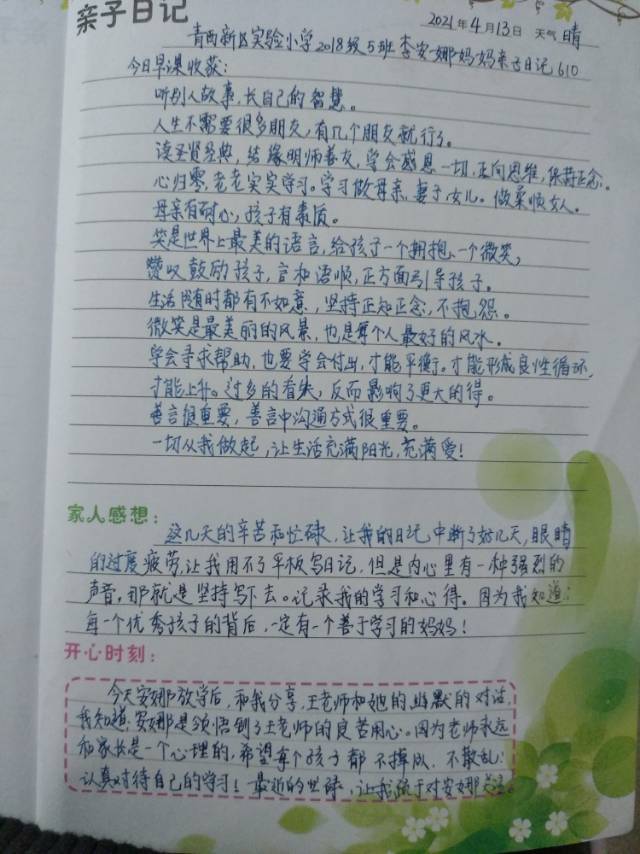 亲子日记
2021年4月13日 天气 晴
青西新区实验小学2018级5班李安娜妈妈亲子日记610
今日早课收获:
听别人故事,长自己的智慧。
人生不需要很多朋友,有几个朋友就行了。
读圣贤经典,结缘明师善友,学会感恩一切,正向思维,保持正念。
心归零,老老实实学习。学习做母亲,妻子,女儿。做柔顺女人。
母亲有耐心,孩子有素质。
笑是世界上最美的语言,给孩子一个拥抱、一个微笑,
赞叹鼓励孩子,言和语顺,正方面引导孩子。
生活随时都有不如意,坚持正知正念,不抱怨。
微笑是最美丽的风景,也是每个人最好的风水。
学会寻求帮助,也要学会付出,才能平衡。才能形成良性循环,
才能上升。过多的看失,反而影响了更大的得。
善言很重要,善言中沟通方式很重要。
一切从我做起,让生活充满阳光,充满爱!
家人感想:
这几天的辛苦和忙碌,让我的日记中断了好几天,眼睛
的过度疲劳,让我用不了平板写日记,但是内心里有一种强烈的
声音,那就是坚持写下去。记录我的学习和心得。因为我知道:
每一个优秀孩子的背后,一定有一个善于学习的妈妈!
开心时刻:
今天安娜放学后,和我分享,王老师和她的幽默的对话,
我知道,安娜是领悟到了王老师的良苦用心。因为老师永远
和家长是一个心理的,希望每个孩子都不掉队、不散乱!
认真对待自己的学习!最近的忙碌,让我疏于对安娜关注。